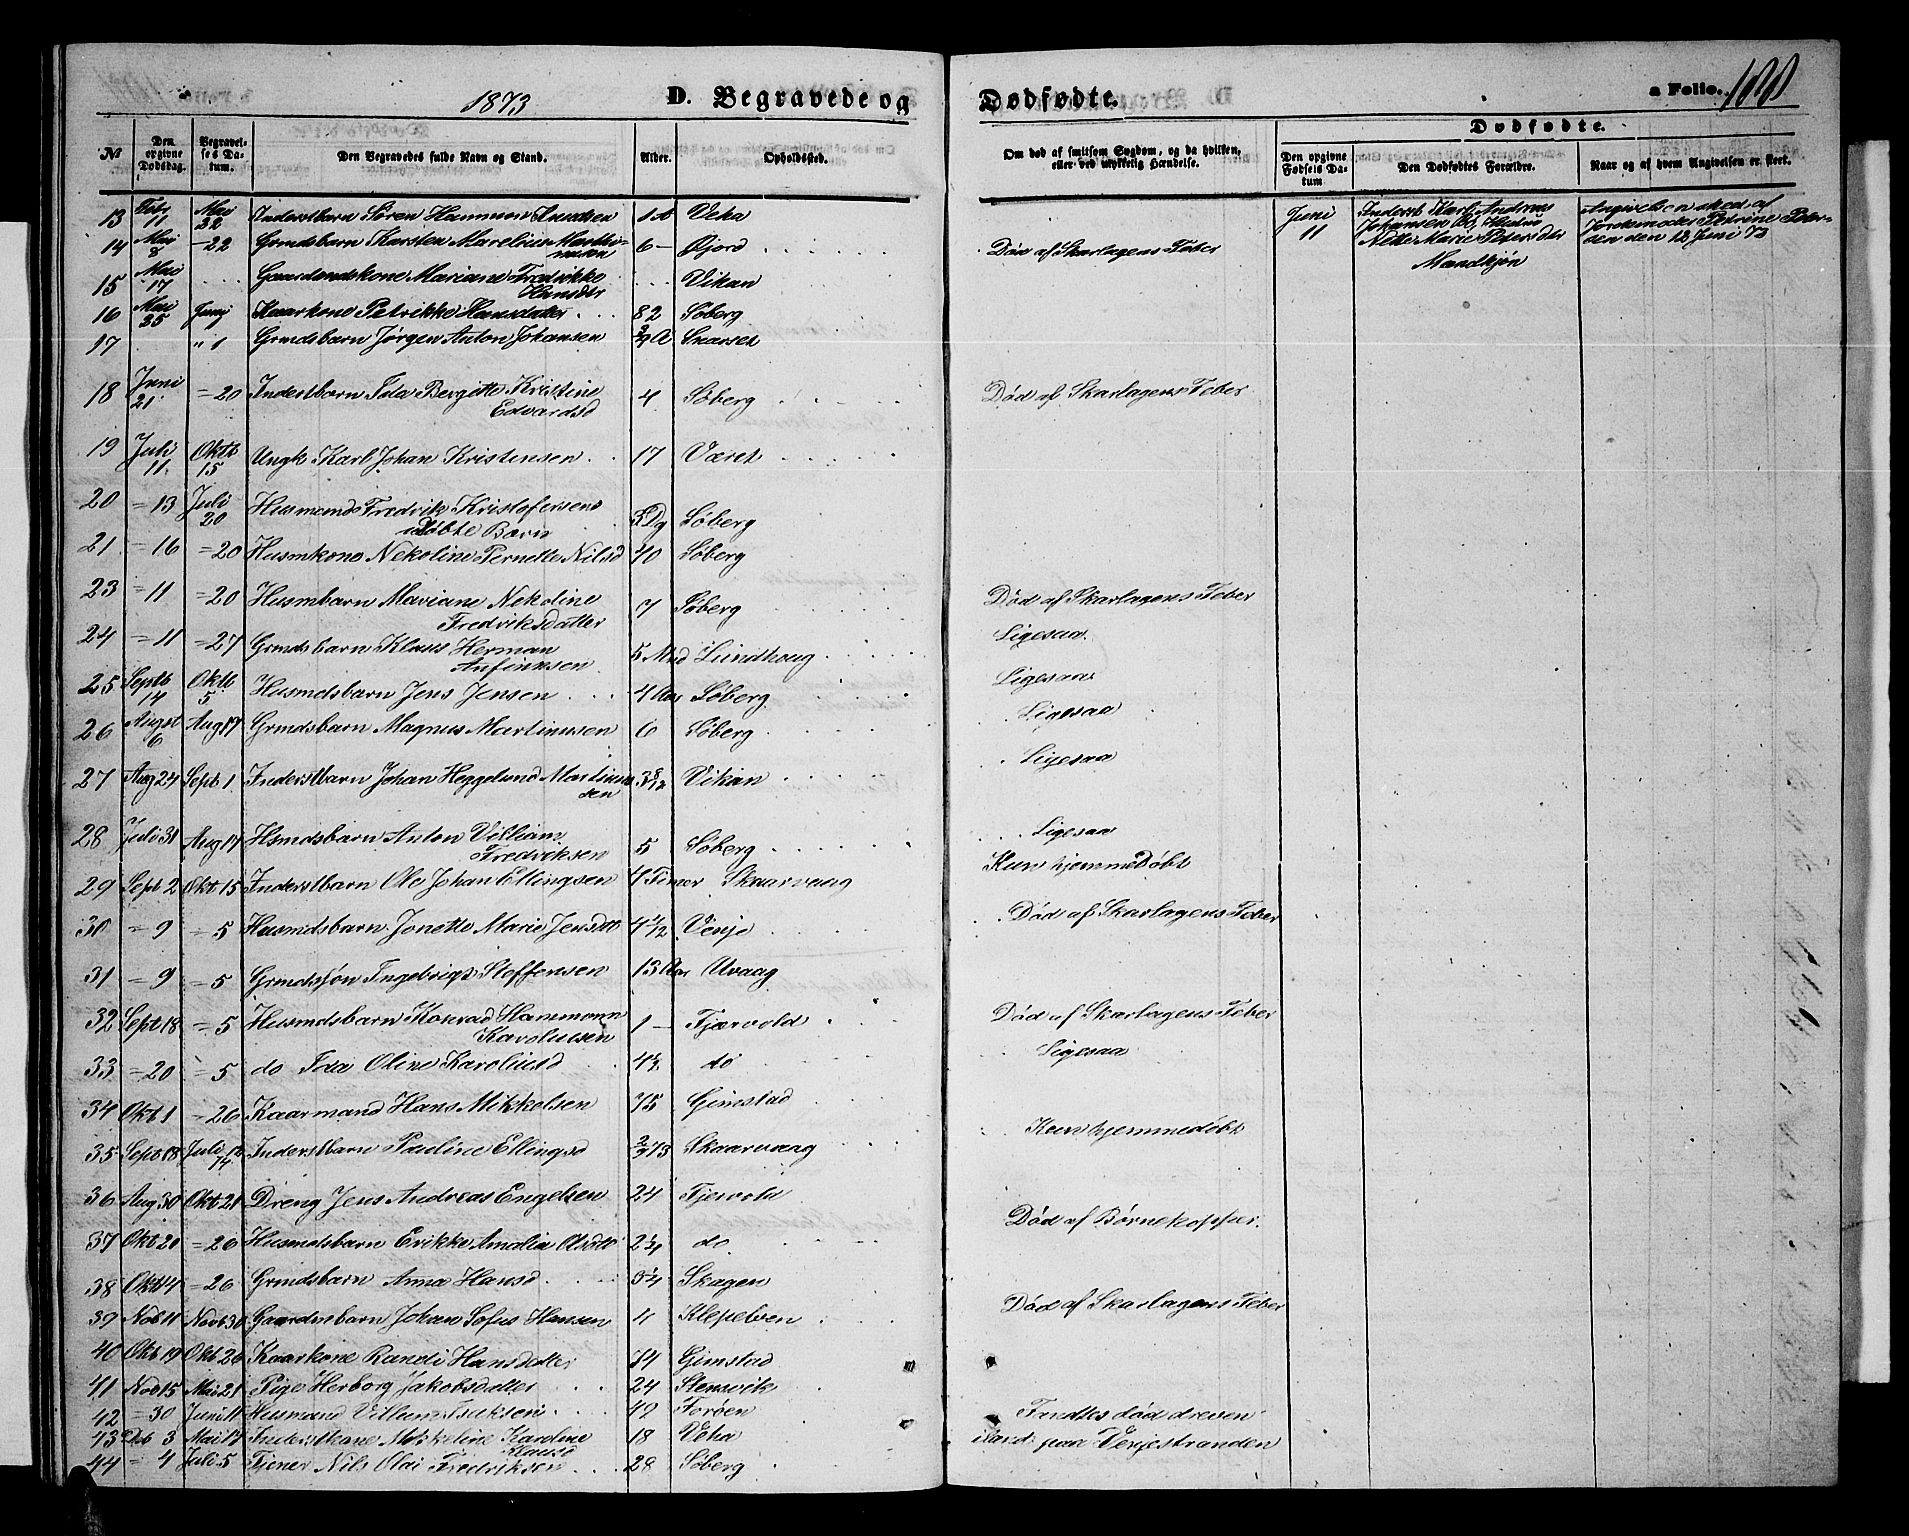 1873 D. Begravede og Dødfødte. a Folio. 188
Dødfødte.
№ Den opgivne Dødsdag. Begravelses Datum. Den Begravedes fulde Navn og Stand. Alder. Opholdssted. Om død af smitsom Sygdom, og da hvilken, eller ved ulykkelig Hændelse. Den opgivne Fødsels Datum Den Dødfødtes Forældre. Naar og af hvem Angivelsen er skeet.
13 Febr 11 Mai 22 Inderstbarn Søren Hammon Knudsen 1 A Veka
Juni 11 Inderst Karl Andreas Johansen og Hustru Nette Marie Petersdtr Mandkjøn
Angivelsen sked af Jordemoder Petrine Petersen den 13 Juni 73
14 Mai 8 -22 Grmdsbarn Karsten Marelius Marthinussen 6 - Øjord Død af Skarlagens Feber
15 Mai 17 Gaardmdskone Mariane Fredrikke Hansdtr Vikan
16 Mai 25 Juni Kaarkone Petrikke Hansdatter 82 Søberg
17 " 1 Grmdsbarn Jørgen Anton Johansen Skarset
18 Juni 21 =20 Inderstbarn Ida Bergitte Kristine Edvardsd 4 Søberg Død af Skarlagens Feber
19 Juli 11 Oktb 15 Ungk. Karl Johan Kristensen 17 Været
20 =13 Juli 20 Husmands Fredrik Kristofersens udøbte Barn 3 Dg Søberg
21 =16 =20 Husmkone Nekoline Pernette Nilsd 40 Søberg
23 =11 =20 Husmbarn Mariane Nekoline Fredriksdatter 7 Søberg Død af Skarlagens Feber
24 =11 =27 Grmdsbarn Klaus Herman Anfinnsen 5 Mnd Lundhoug Ligesaa
25 Septb 14 Oktb 5 Husmdsbarn Jens Jensen 4 Aar Søberg Ligesaa
26 August 6 Aug 17 Grmdsbarn Magnus Martinusen 6 Søberg Ligesaa
27 Aug 24 Sept 1 Inderstbarn Johan Heggelund Martinussen 3 8/12 Vikan Ligesaa
28 Juli 31 Aug 17 Hsmdsbarn Anton Villiam Fredriksen 5 Søberg Ligesaa
29 Sept 2 Okt 15 Inderstbarn Ole Johan Ellingsen 4 Timer Skaarvaag Kun hjemmedøbt
30 =9 =5 Husmdsbarn Jonette Marie Jensdtr 4 1/2 Vinje Død af Skarlagens Feber
31 =9 =5 Grmdssøn Ingebrigt Stoffensen 13 Aar Uvaag
32 Sept 18 =5 Husmdsbarn Konrad Hammonn Karoliusen 1 - Fjærvold Død af Skarlagens Feber
33 =20 =5 do Ida Oline Karoliusd 4 1/2 do Ligesaa
34 Okt 1 =26 Kaarmand Hans Mikkelsen 75 Gimstad
35 Sept 18 Juli 12 74 Inderstbarn Pauline Ellingsd 2/3 73 Skaarvaag Kun hjemmedøbt
36 Aug 30 Okt 21 Dreng Jens Andreas Engelsen 24 Fjervold
37 Okt 20 =26 Husmdsbarn Erikke Amalia Olsdtr 2 1/4 do Død af Børnekopper.
38 Okt 14 =26 Grmdsbarn Anna Hansd 3/4 Skagen
39 Nob 11 Novb 30 Gaardmsbarn Johan Sofus Hansen 4 Klepelven Død af Skarlagens Feber
40 Okt 19 Okt 26 Kaarkone Randi Hansdatter 74 Gimstad
41 Nob 15 Mai 21 Pige Herborg Jakobsdatter 24 Stensvik
42 =30 Juni 11 Husmand Villum Isaksen 49 Forøen Fundtes død dreven
43 Deb 3 Mai 17 Inderstkone Mikkeline Karoline Klausd 18 Veha iland paa Vinjestranden
44 =4 Juli 5 Tjener Nils Olai Fredriksen 28 Søberg